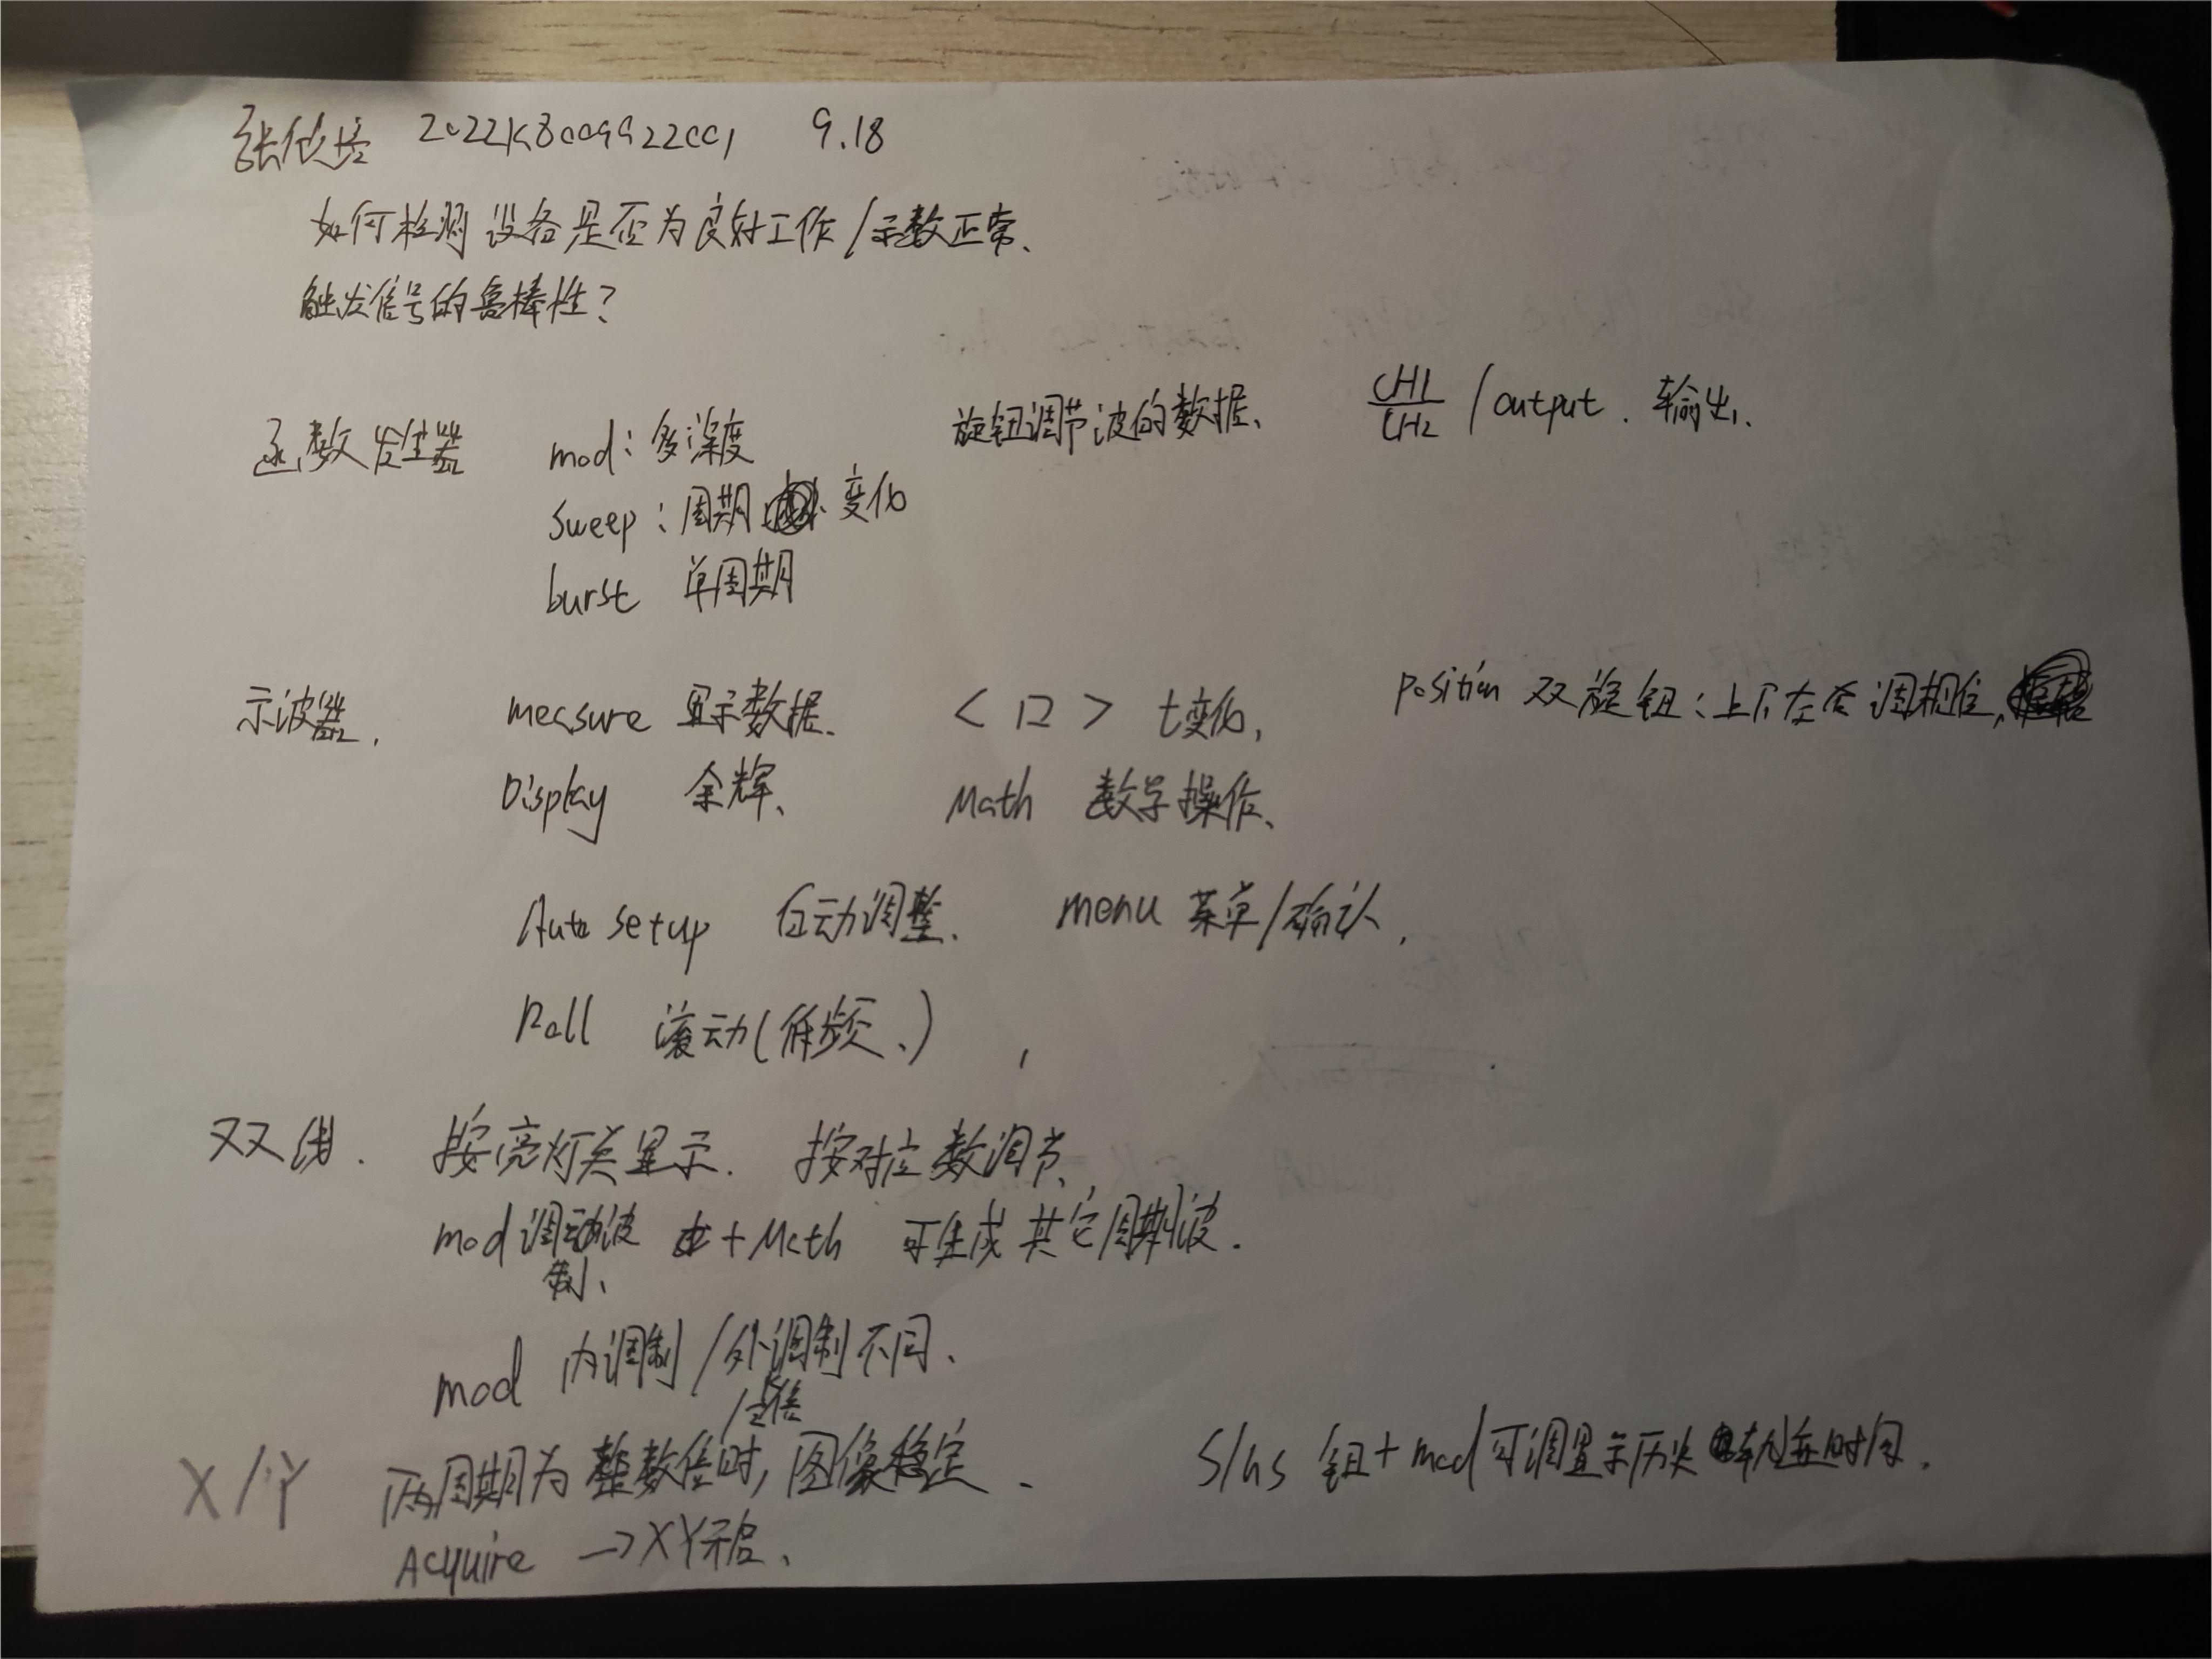 2022K8009922001 9.18
如何检测设备是否为良好工作/示数正常、
触发信号的鲁棒性?
函数发生器 mod:多深度 旋钮调节波的数据、 CH1/CH2 /output. 输出、
sweep:周期 变化
burst 单周期
示波器, measure 显示数据、 < > t变化, position 双旋钮:上下左右调相位,
Display 余辉、 Math 数学操作、
Auto setup 自动调整、 menu 菜单/确认,
Roll 滚动(低频、) ,
双线. 按亮灯关显示. 按对应数调节、
mod调 波 +Math 可生成其它周期波.
制、
mod 内调制/外调制不同、
X/Y 两周期为整数倍时,图像稳定、 S/ns 钮+mod可调显示历史轨迹时间.
Acquire →XY